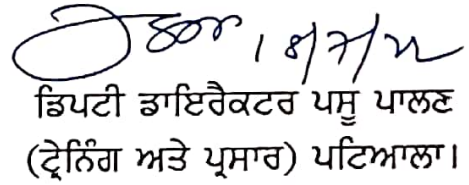 ਡਿਪਟੀ ਡਾਇਰੈਕਟਰ ਪਸੂ ਪਾਲਣ
(ਟ੍ਰੇਨਿੰਗ ਅਤੇ ਪ੍ਰਸਾਰ) ਪਟਿਆਲਾ।